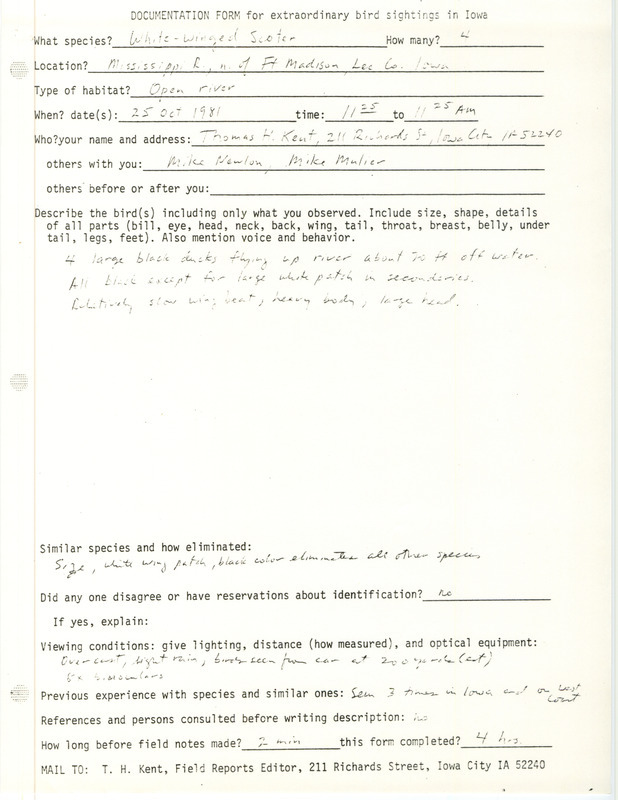 DOCUMENTATION FORM for extraordinary bird sightings in Iowa
What species? White-winged Scoter How many? 4
Location? Mississippi R., n. of Ft Madison, Lee Co. Iowa
Type of habitat? Open river
When? date(s): 25 Oct 1981 time: 11 25 to 11 25 AM
Who?your name and address: Thomas H. Kent, 211 Richards St, Iowa City IA 52240
others with you: Mike Newlon, Mike Mulier
others before or after you:
Describe the bird(s) including only what you observed. Include size, shape, details
of all parts (bill, eye, head, neck, back, wing, tail, throat, breast, belly, under
tail, legs, feet). Also mention voice and behavior.
4 large black ducks flying up river about 20 ft off water.
All black except for large white patch in seconderies.
Relatively slow wing beat, heavy body, large head.
Similar species and how eliminated:
Size, white wing patch, black color eliminates all other species
Did any one disagree or have reservations about identification? no
If yes, explain:
Viewing conditions: give lighting, distance (how measured), and optical equipment:
Overcast, light rain, birds seen from car at 200 yards (est)
binoculars
Previous experience with species and similar ones: Seen 3 times in Iowa and on west
coast
References and persons consulted before writing description: no
How long before field notes made? 2 min this form completed? 4 hrs.
MAIL TO: T. H. Kent, Field Reports Editor, 211 Richards Street, Iowa City IA 52240